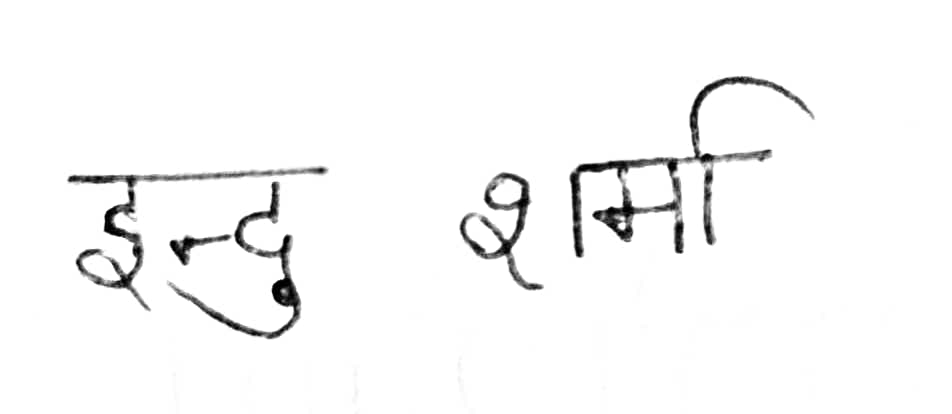 इन्दु शर्मा